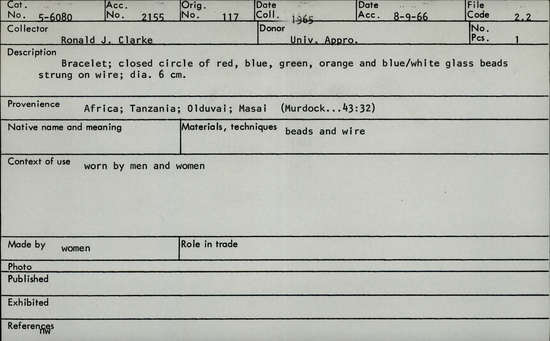 Cat. No. 5-6080 Acc. No. 2155 Orig. No. 117 Date Coll. 1965 Date Acc. 8-9-66 File Code 2.2
Collector Ronald J. Clarke Donor Univ. Appro. No. Pcs. 1
Description
Bracelet; closed circle of red, blue, green, orange and blue/white glass beads
strung on wire; dia. 6 cm.
Provenience Africa; Tanzania; Olduvai; Masai (Murdock...43:32)
Native name and meaning Materials, techniques beads and wire
Context of use worn by men and women
Made by women Role in trade
Photo
Published
Exhibited
References
nw